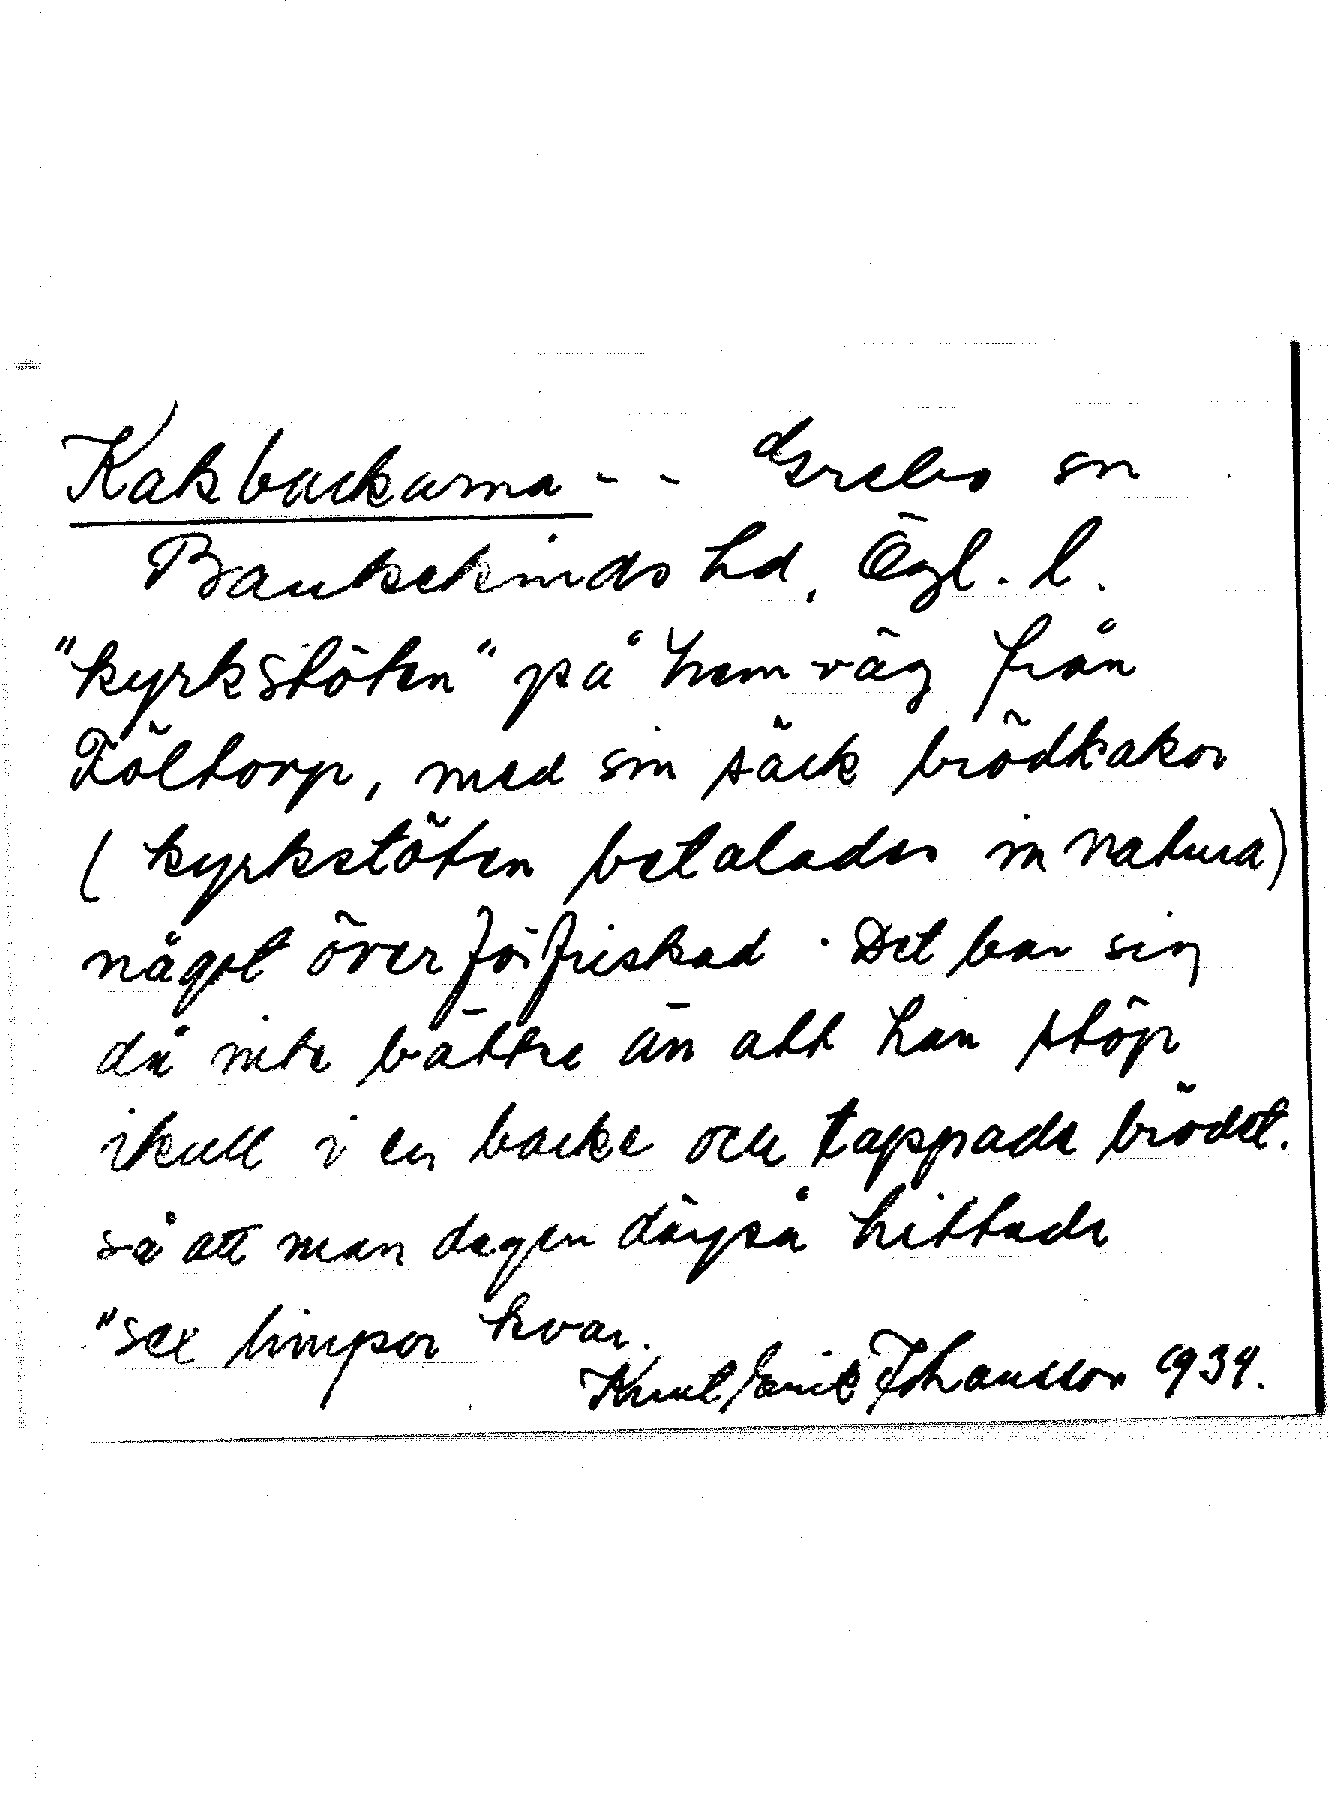 Kakbackarna - - Grebo sn
Bankekinds hd, Ögl. l.
"kyrkstöten" på hem väg från
Föltorp, med sin säck brödkakor
(kyrkstöten betalades in natura)
något överförfriskad. Det bar sig
då inte bättre än att han stöp
ikull i en backe och tappade brödet.
så att man dagen därpå hittade
"sex limpor kvar.
Knut Erik Johansson 1934.